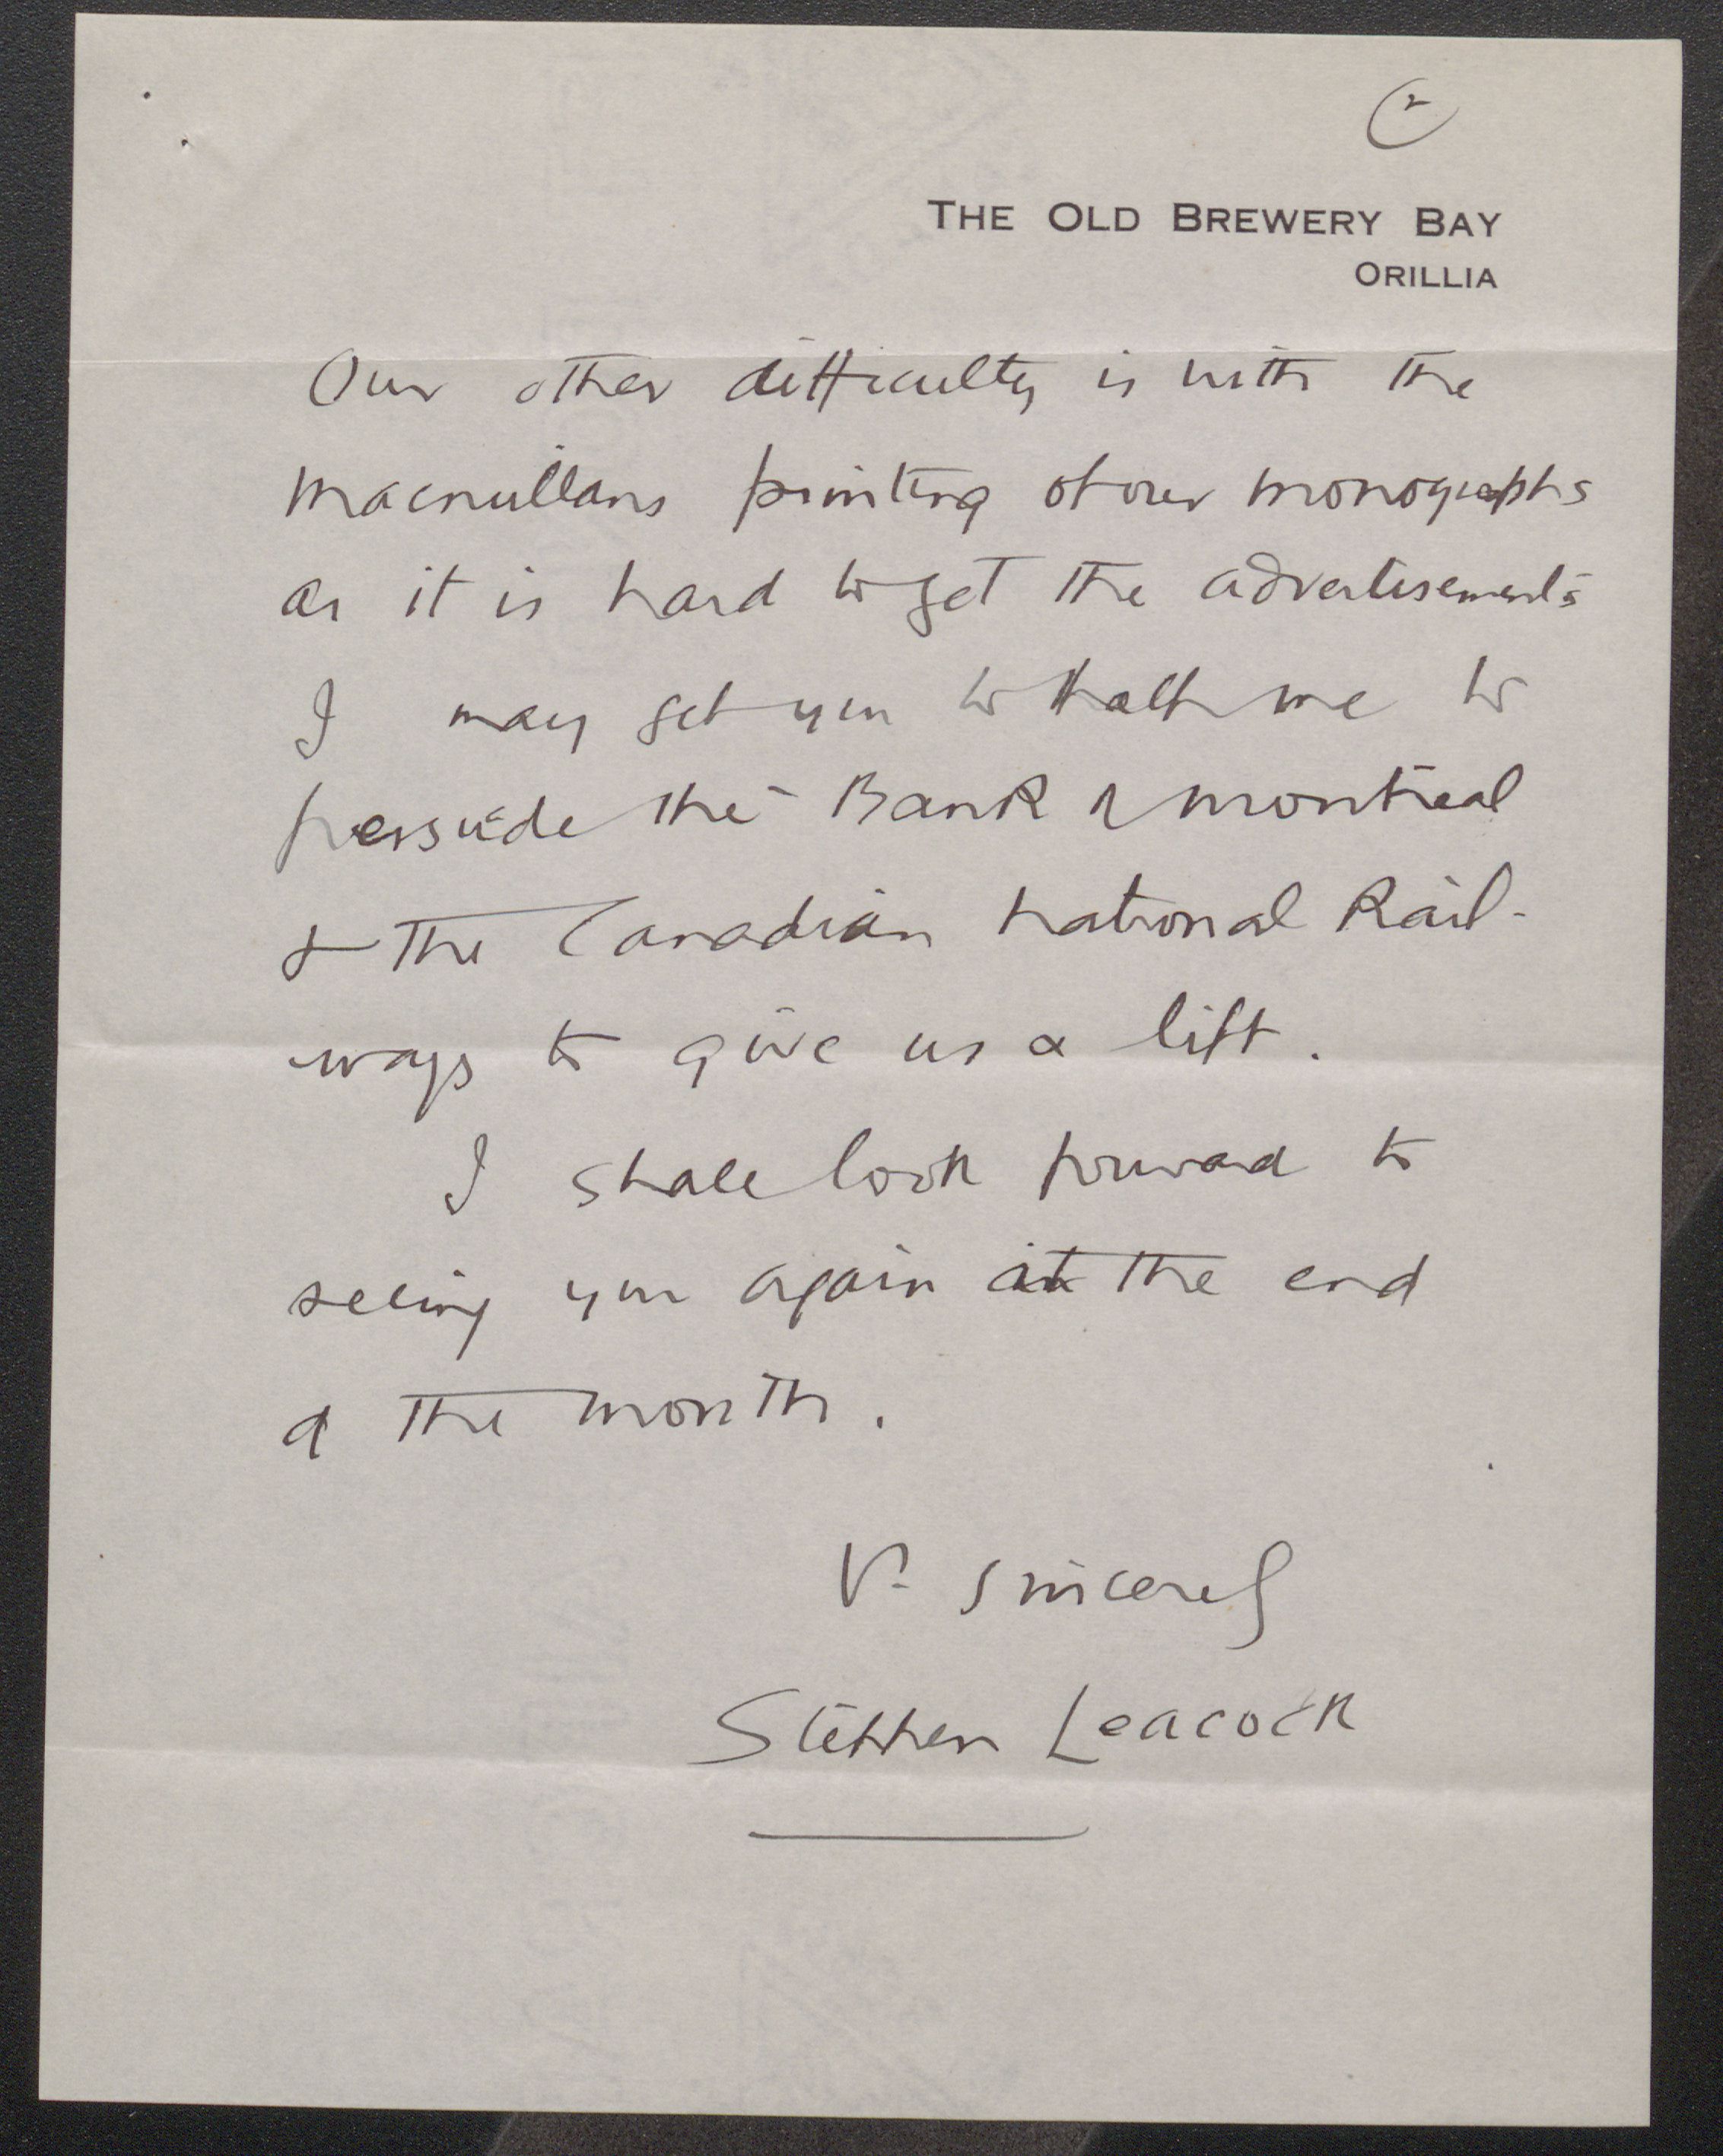 2
THE OLD BREWERY BAY
ORILLIA
Our other difficulty is with the
Macmillans printing of our monographs
as it is hard to get the advertisements
I may get you to help me to
persuade the Bank of Montreal
& the Canadian National Rail-
ways to give us a lift.
I shall look forward to
seeing you again at the end
of the month.
V. sincerely
Stephen Leacock